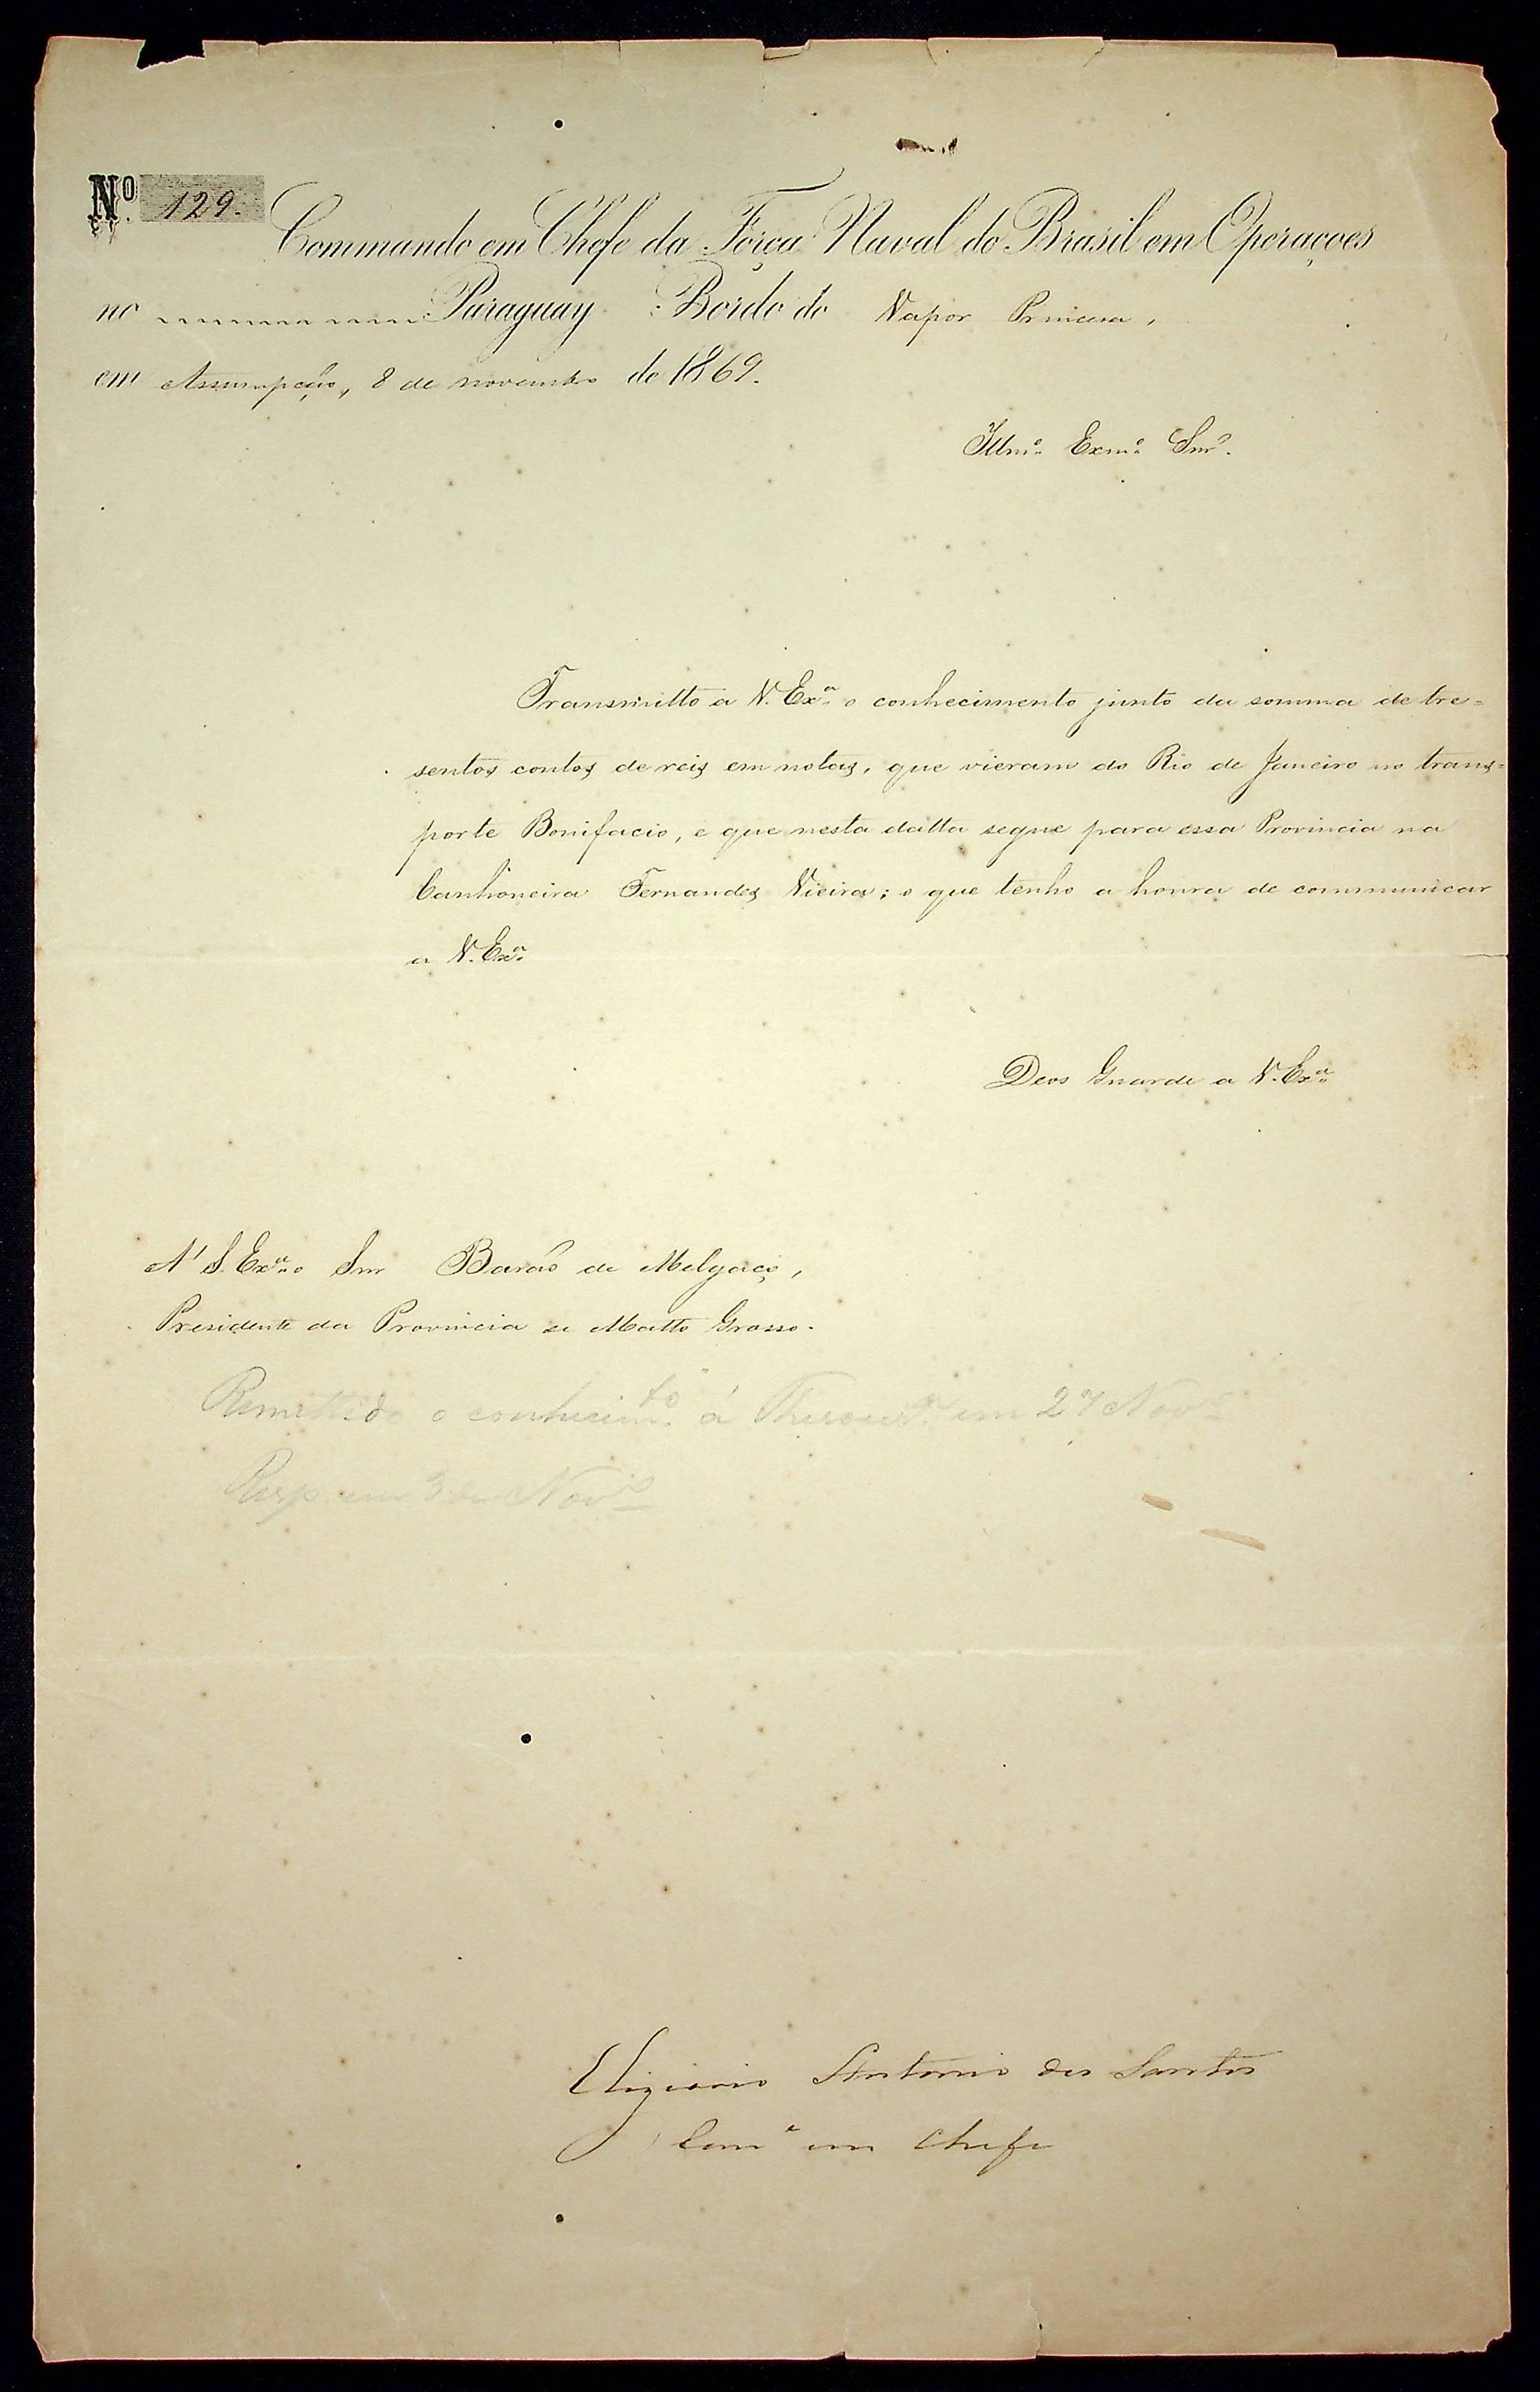 Nº 129.
Commando em Chefe da Força Naval do Brasil em Operações
no Paraguay. Bordo do Vapor Princesa,
em Assumpção, 8 de novembro de 1869.
Illmº Exmº Snr.
Transmitto a V. Exª o conhecimento junto da somma de tre=
sentos contos de reis em notas, que vieram do Rio de Janeiro no trans=
porte Bonifacio, e que nesta datta segue para essa Provincia na
Canhoneira Fernandes Vieira; o que tenho a honra de communicar
a V. Exª
Deos Guarde a V. Exª
A' S. Exª o Snr Barão de Melgaço,
Presidente da Provincia de Matto Grosso.
Remettido o conhecimto á Thesourª em 27 Novº
Resp. em 3 de Novº
Elisiario Antonio dos Santos
Comº em Chefe